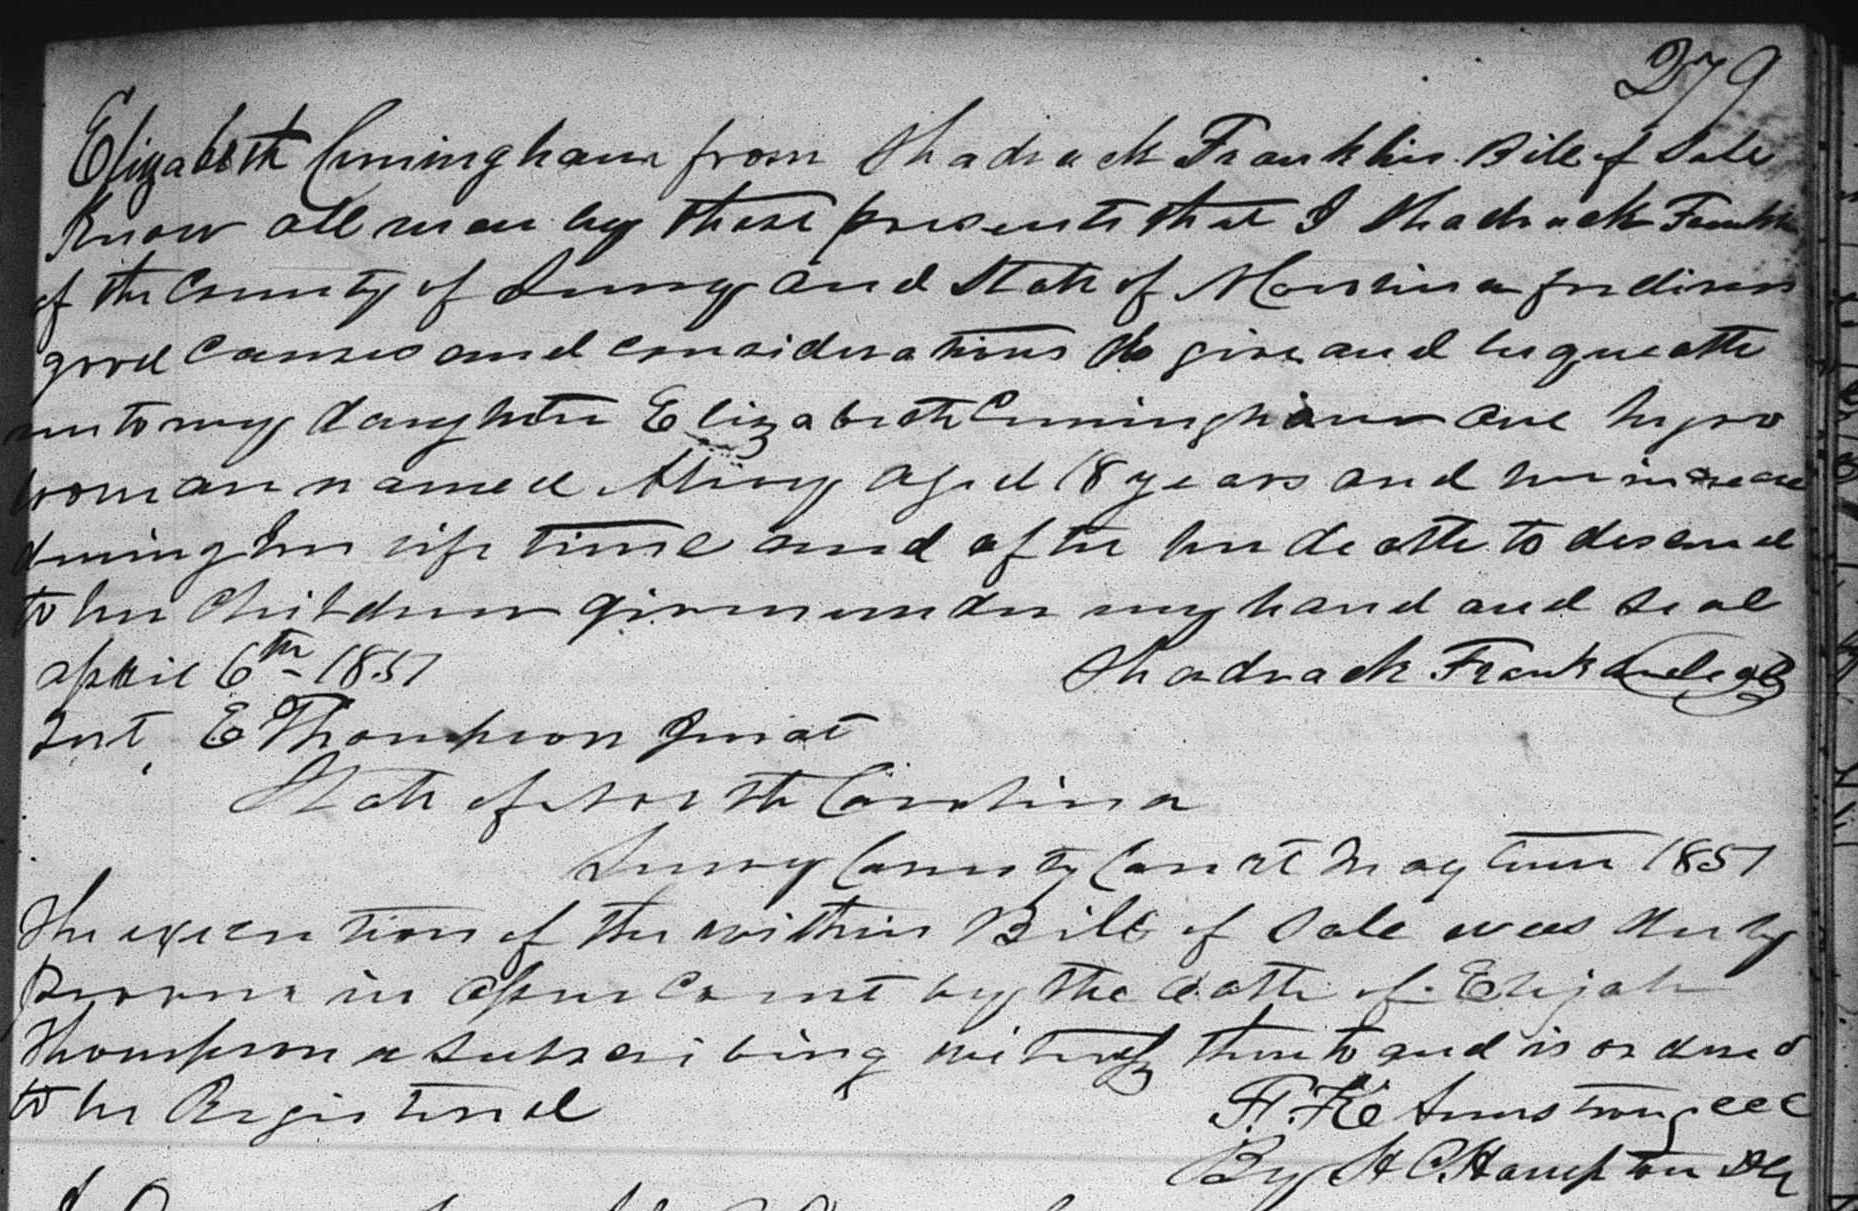 279
Elizabeth Cuningham from Shadrack Franklin Bill of Sale
Know all men by these presents that I Shadrack Franklin
of the County of Surry and State of N Carolina for divers
good causes and considerations do give and bequeath
unto my daughter Elizabeth Cuningham one negro
woman named aged 18 years and her increase
during her life time and after her death to descend
to her Children given under my hand and seal
april 6th 1851 Shadrack Franklin seal
Test E Thompson Jurat
State of North Carolina
Surry County Court May term 1851
The execution of the within Bill of Sale was duly
proven in open court by the oath of Elijah
Thompson a subscribing witness thereto and is ordered
to be Registered
F. K. Armstrong CCC
By H C. Hampton DC